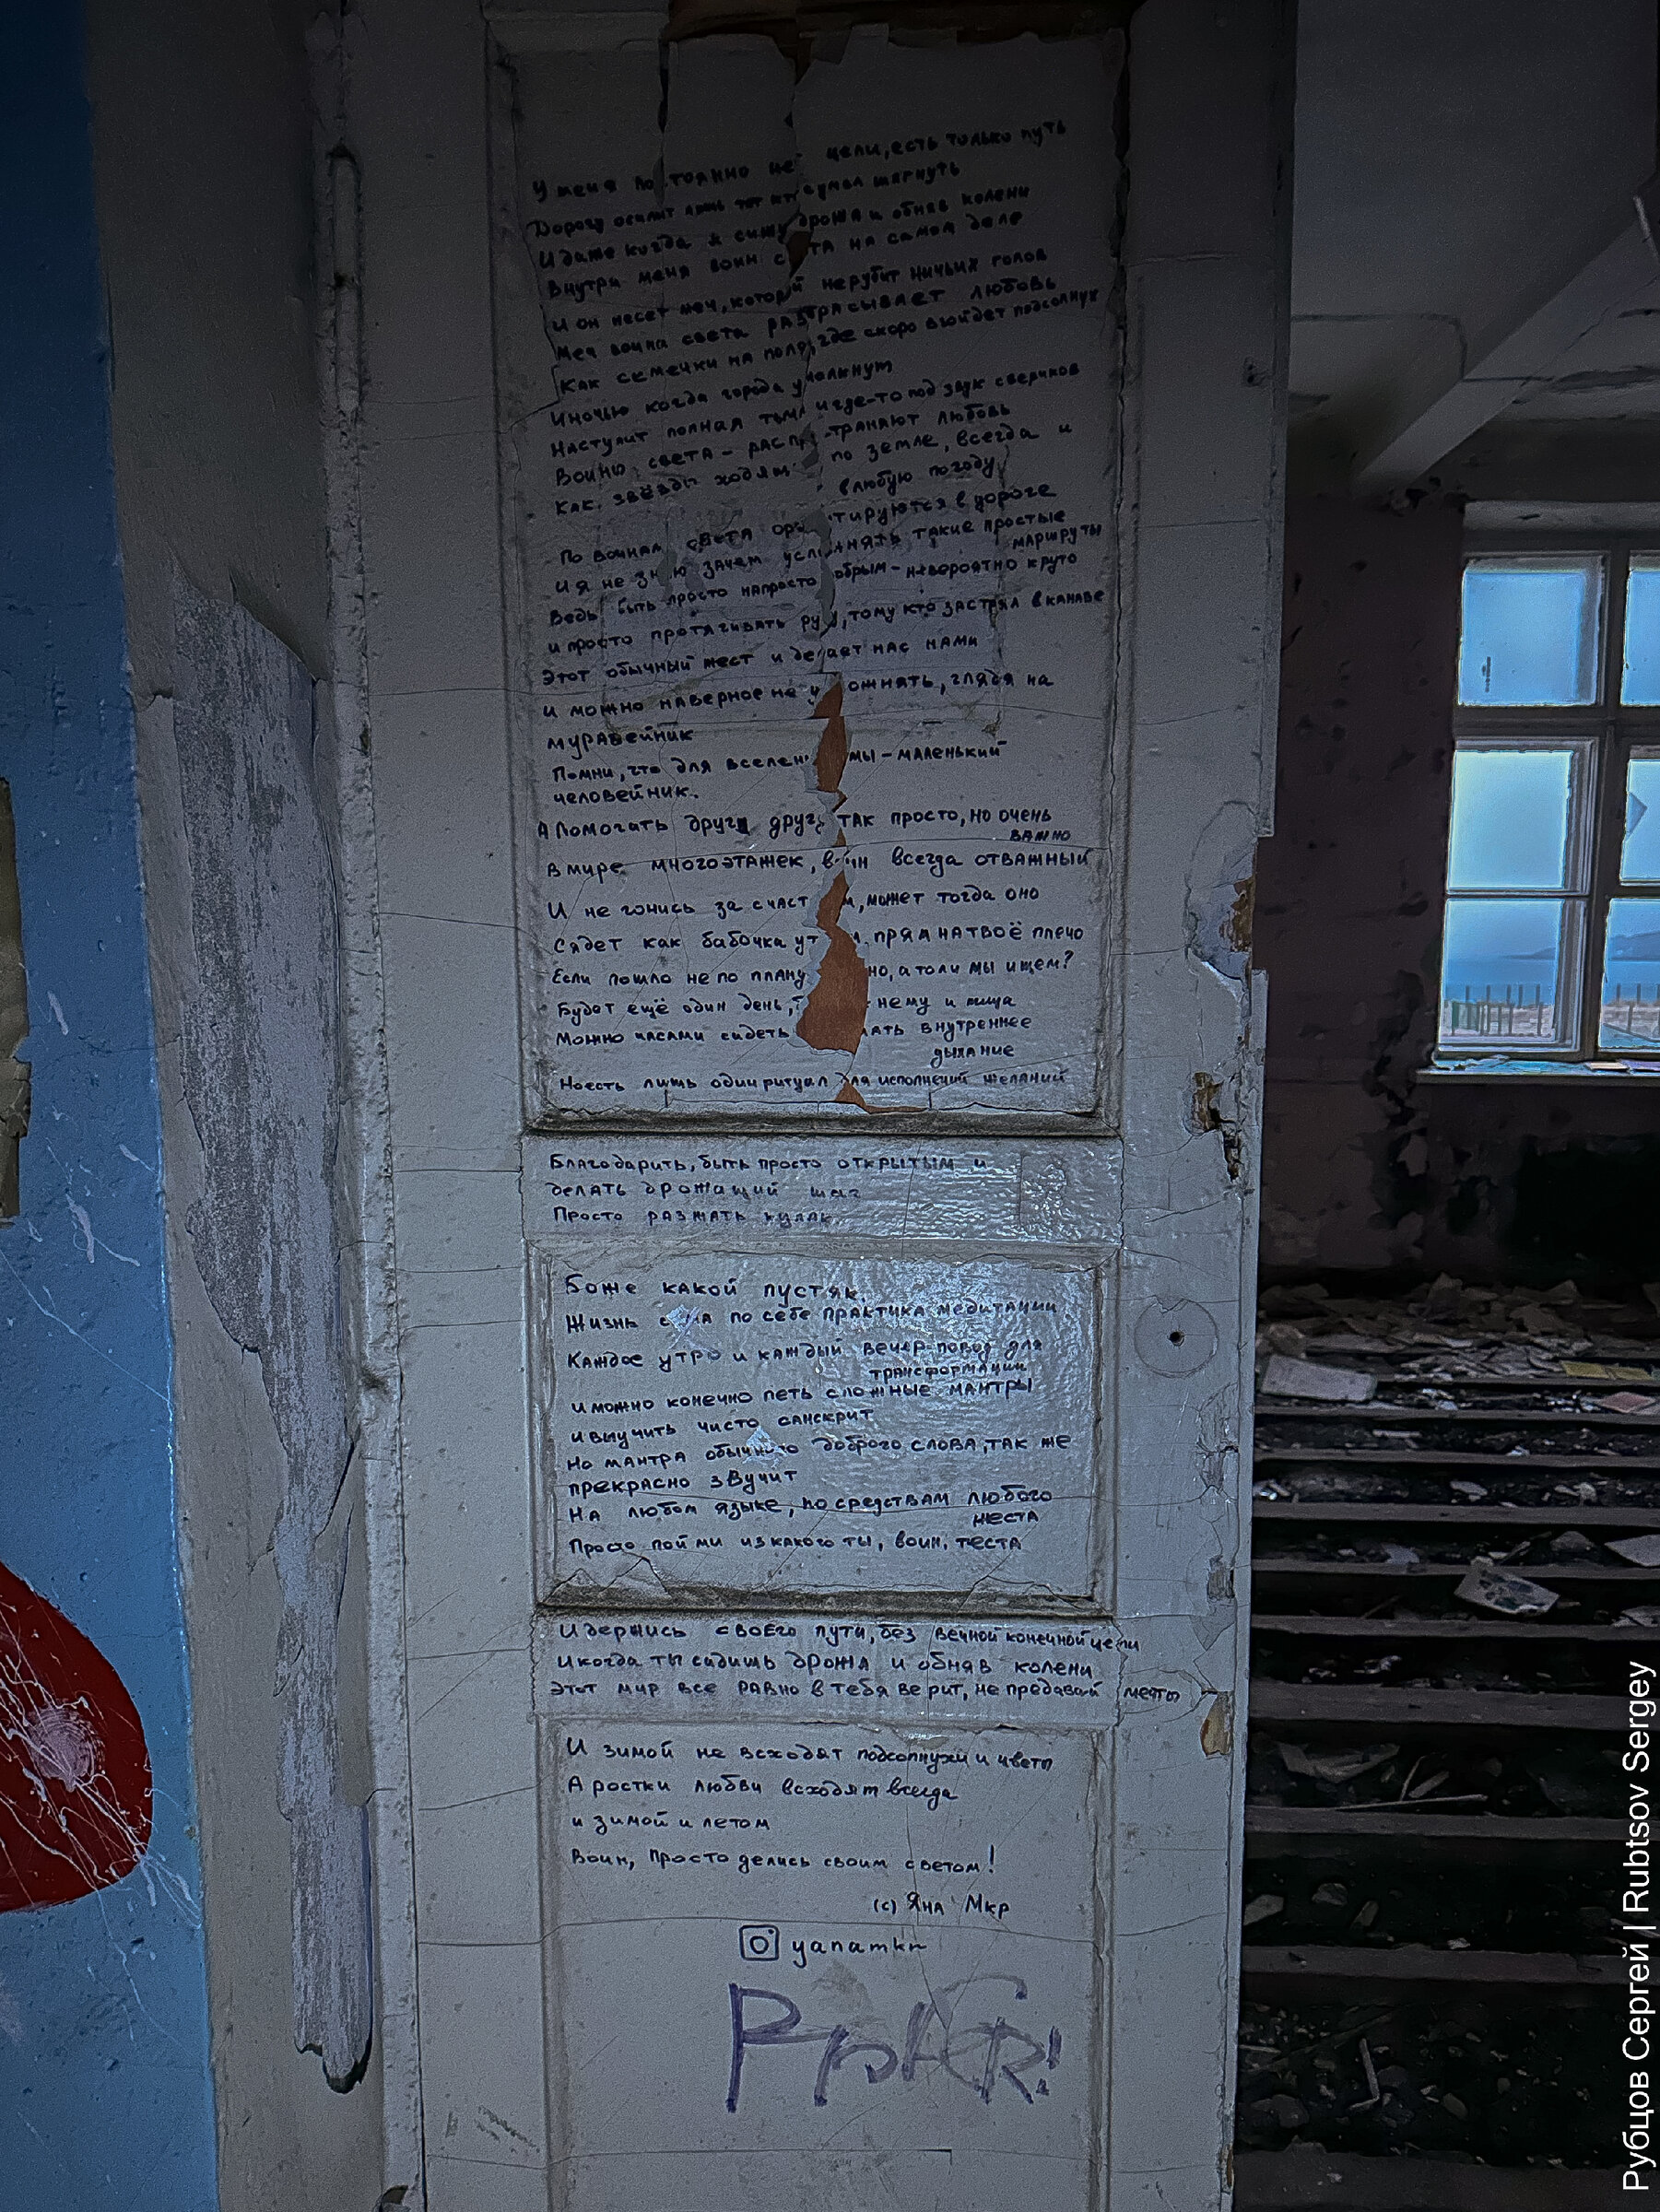 У меня постоянно нет цели, есть только путь
Дорогу осилит лишь тот кто сумел шагнуть
И даже когда я сижу дрожа и обняв колени
Внутри меня воин света на самом деле
И он несет меч, который не рубит ничьих голов
Меч воина света разбрасывает любовь
Как семечки на поле, где скоро взойдет подсолнух
И ночью когда города умолкнут
Наступит полная тьма и где-то под звук сверчков
Воины света - распространяют любовь
Как звёзды ходят по земле, всегда и
в любую погоду
По воинам света ориентируются в дороге
И я не знаю зачем усложнять такие простые
маршруты
Ведь быть просто напросто добрым - невероятно круто
и просто протягивать руку, тому кто застрял в канаве
Этот обычный жест и делает нас нами
и можно наверное не усложнять, глядя на
муравейник
Помни, что для вселенной мы - маленький
человейник.
А помогать друг другу так просто, но очень
важно
В мире многоэтажек, воин всегда отважный
И не гонись за счастьем, может тогда оно
Сядет как бабочка утром прям на твоё плечо
Если пошло не по плану но, а то ли мы ищем?
Будет ещё один день, нему и пища
Можно часами сидеть внутреннее
дыхание
Но есть лишь один ритуал для исполнения желаний
Благодарить, быть просто открытым и
делать дрожащий шаг
Просто разжать кулак.
Боже какой пустяк.
Жизнь сама по себе практика медитации
Каждое утро и каждый вечер-повод для
трансформации
и можно конечно петь сложные мантры
и выучить чисто санскрит
Но мантра обычного доброго слова, так же
прекрасно звучит
На любом языке, по средствам любого
жеста
Просто пойми из какого ты, воин, теста
И держись своего пути, без вечной конечной цели
И когда ты сидишь дрожа и обняв колени
Этот мир все равно в тебя верит, не предавай мечты
И зимой не всходят подсолнухи и цветы
А ростки любви всходят всегда
и зимой и летом
Воин, просто делись своим светом!
(с) Яна Мкр
yanamkr
Рубцов Сергей | Rubtsov Sergey